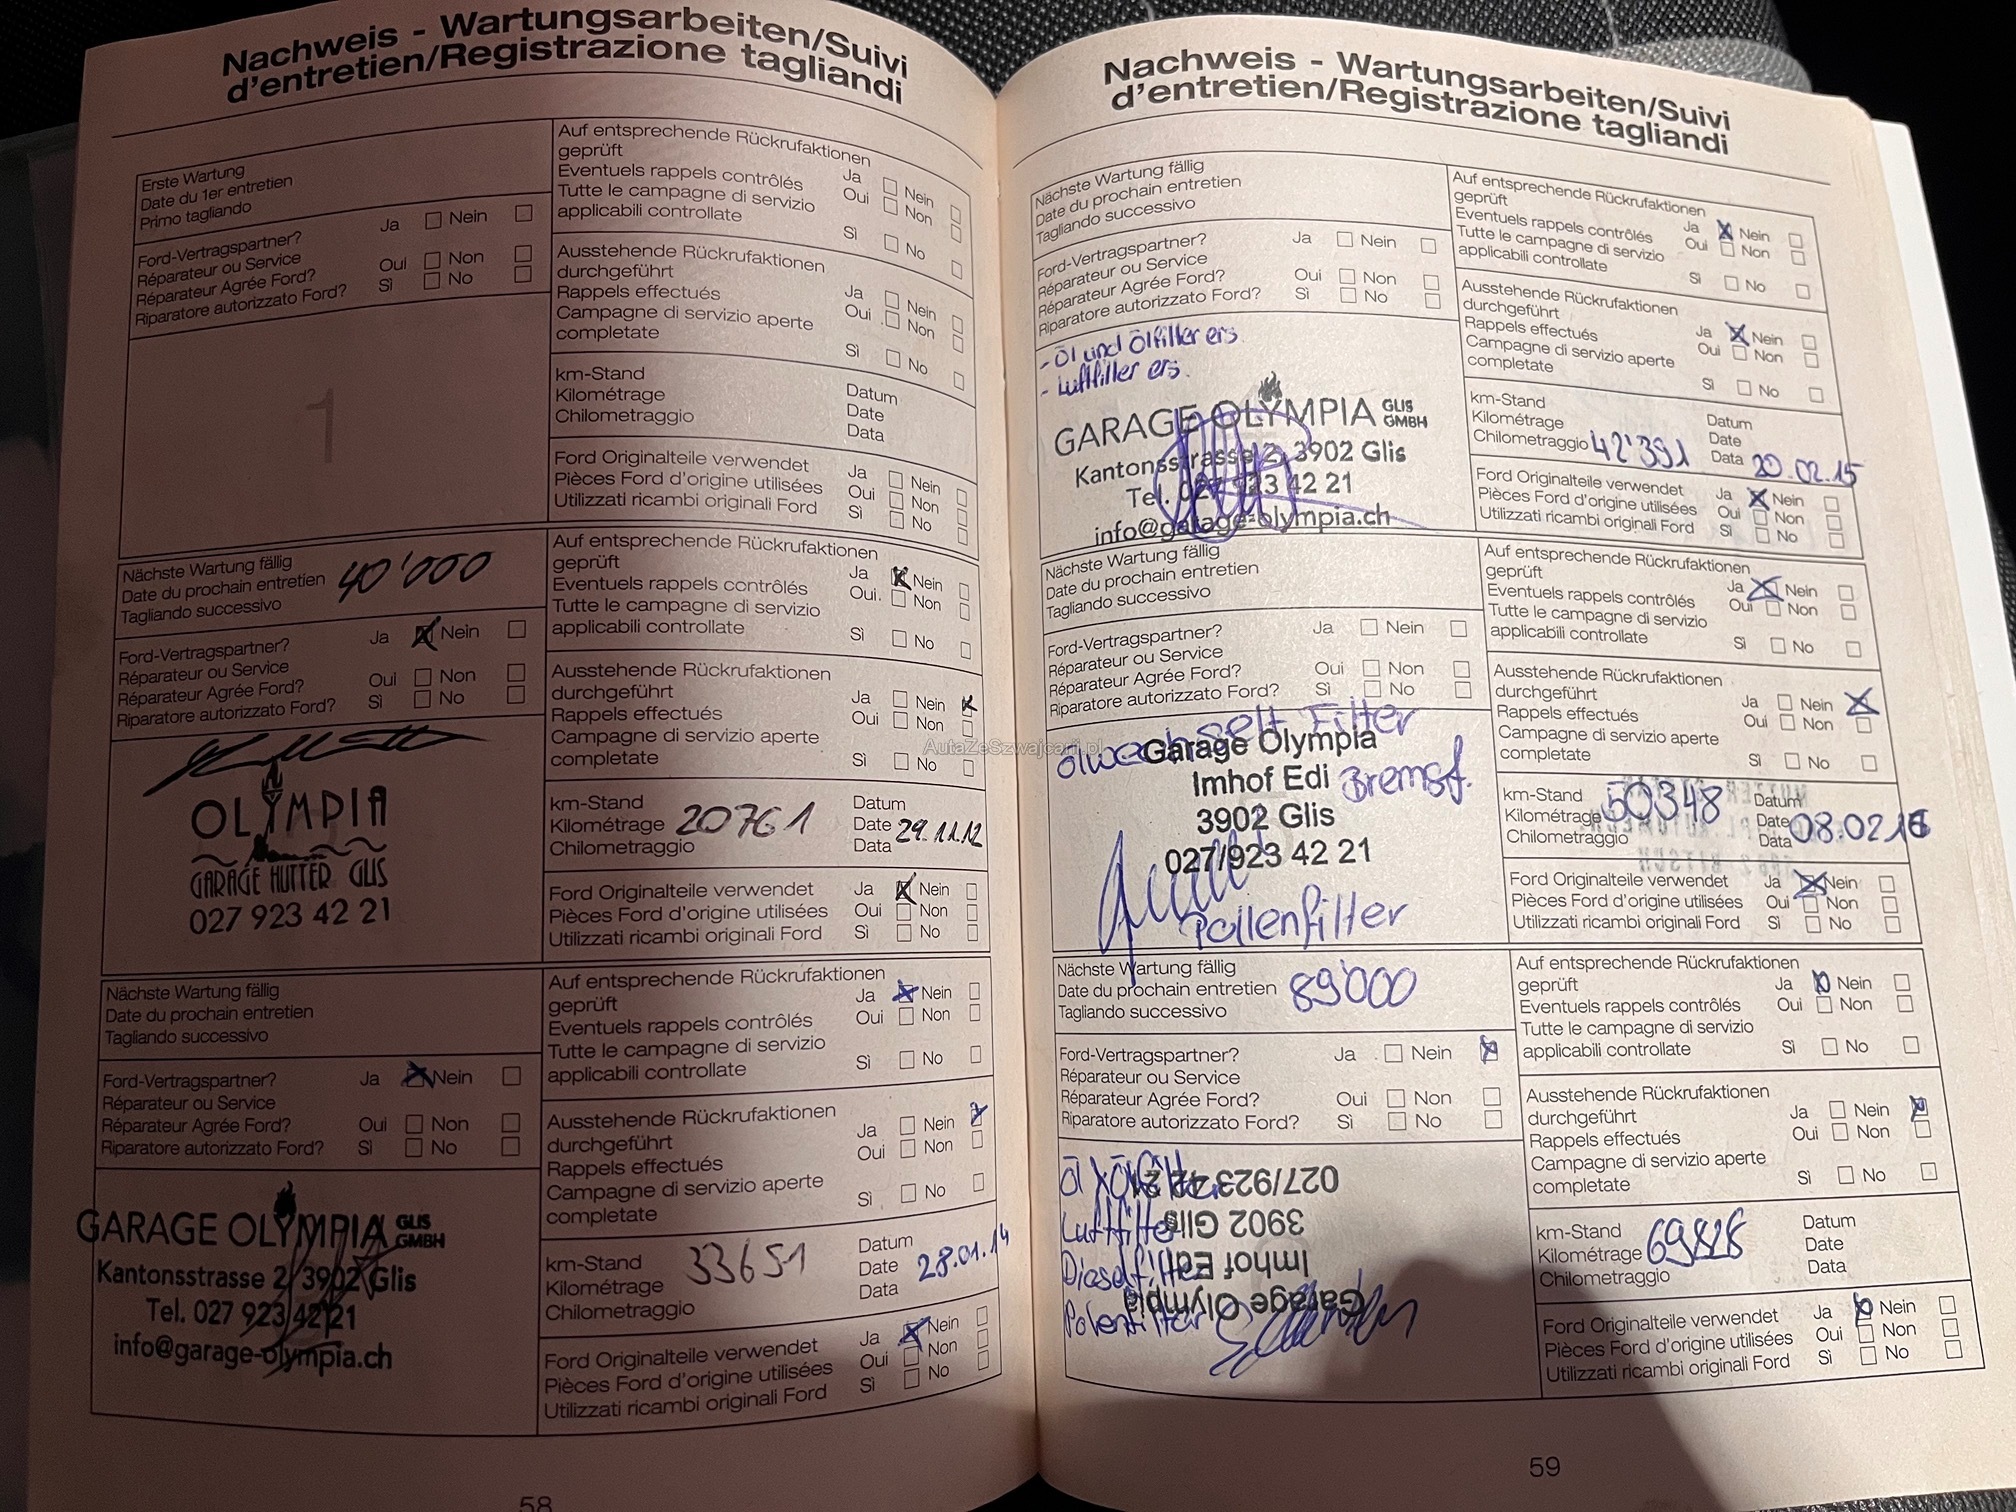 Nachweis - Wartungsarbeiten/Suivi
d'entretien/Registrazione tagliandi
Erste Wartung
Date du 1er entretien
Primo tagliando
Ford-Vertragspartner? Ja Nein
Réparateur ou Service
Réparateur Agrée Ford? Oui Non
Riparatore autorizzato Ford? Sì No
1
Auf entsprechende Rückrufaktionen
geprüft Ja Nein
Eventuels rappels contrôlés Oui Non
Tutte le campagne di servizio
applicabili controllate Sì No
Ausstehende Rückrufaktionen
durchgeführt Ja Nein
Rappels effectués Oui Non
Campagne di servizio aperte
completate Sì No
km-Stand Datum
Kilométrage Date
Chilometraggio Data
Ford Originalteile verwendet Ja Nein
Pièces Ford d'origine utilisées Oui Non
Utilizzati ricambi originali Ford Sì No
Nächste Wartung fällig
Date du prochain entretien 40'000
Tagliando successivo
Ford-Vertragspartner? Ja Nein
Réparateur ou Service
Réparateur Agrée Ford? Oui Non
Riparatore autorizzato Ford? Sì No
OLYMPIA
GARAGE HUTTER GLIS
027 923 42 21
Auf entsprechende Rückrufaktionen
geprüft Ja Nein
Eventuels rappels contrôlés Oui Non
Tutte le campagne di servizio
applicabili controllate Sì No
Ausstehende Rückrufaktionen
durchgeführt Ja Nein
Rappels effectués Oui Non
Campagne di servizio aperte
completate Sì No
km-Stand Datum
Kilométrage 20761 Date 29.11.12
Chilometraggio Data
Ford Originalteile verwendet Ja Nein
Pièces Ford d'origine utilisées Oui Non
Utilizzati ricambi originali Ford Sì No
Nächste Wartung fällig
Date du prochain entretien
Tagliando successivo
Ford-Vertragspartner? Ja Nein
Réparateur ou Service
Réparateur Agrée Ford? Oui Non
Riparatore autorizzato Ford? Sì No
GARAGE OLYMPIA GLIS GMBH
Kantonsstrasse 2, 3902 Glis
Tel. 027 923 42 21
info@garage-olympia.ch
Auf entsprechende Rückrufaktionen
geprüft Ja Nein
Eventuels rappels contrôlés Oui Non
Tutte le campagne di servizio
applicabili controllate Sì No
Ausstehende Rückrufaktionen
durchgeführt Ja Nein
Rappels effectués Oui Non
Campagne di servizio aperte
completate Sì No
km-Stand Datum
Kilométrage 33651 Date 28.01.14
Chilometraggio Data
Ford Originalteile verwendet Ja Nein
Pièces Ford d'origine utilisées Oui Non
Utilizzati ricambi originali Ford Sì No
58
Nachweis - Wartungsarbeiten/Suivi
d'entretien/Registrazione tagliandi
Nächste Wartung fällig
Date du prochain entretien
Tagliando successivo
Ford-Vertragspartner? Ja Nein
Réparateur ou Service
Réparateur Agrée Ford? Oui Non
Riparatore autorizzato Ford? Sì No
- Öl und Ölfilter ers
- Luftfilter ers.
GARAGE OLYMPIA GLIS GMBH
Kantonsstrasse 2, 3902 Glis
Tel. 027 923 42 21
info@garage-olympia.ch
Auf entsprechende Rückrufaktionen
geprüft Ja Nein
Eventuels rappels contrôlés Oui Non
Tutte le campagne di servizio
applicabili controllate Sì No
Ausstehende Rückrufaktionen
durchgeführt Ja Nein
Rappels effectués Oui Non
Campagne di servizio aperte
completate Sì No
km-Stand Datum
Kilométrage Date
Chilometraggio 42'391 Data 20.02.15
Ford Originalteile verwendet Ja Nein
Pièces Ford d'origine utilisées Oui Non
Utilizzati ricambi originali Ford Sì No
Nächste Wartung fällig
Date du prochain entretien
Tagliando successivo
Ford-Vertragspartner? Ja Nein
Réparateur ou Service
Réparateur Agrée Ford? Oui Non
Riparatore autorizzato Ford? Sì No
Ölwechsel+ Filter
Garage Olympia
Imhof Edi Bremsf.
3902 Glis
027/923 42 21
Pollenfilter
Auf entsprechende Rückrufaktionen
geprüft Ja Nein
Eventuels rappels contrôlés Oui Non
Tutte le campagne di servizio
applicabili controllate Sì No
Ausstehende Rückrufaktionen
durchgeführt Ja Nein
Rappels effectués Oui Non
Campagne di servizio aperte
completate Sì No
km-Stand Datum
Kilométrage 50348 Date 08.02.16
Chilometraggio Data
Ford Originalteile verwendet Ja Nein
Pièces Ford d'origine utilisées Oui Non
Utilizzati ricambi originali Ford Sì No
Nächste Wartung fällig
Date du prochain entretien 89'000
Tagliando successivo
Ford-Vertragspartner? Ja Nein
Réparateur ou Service
Réparateur Agrée Ford? Oui Non
Riparatore autorizzato Ford? Sì No
027/923 42 21
Luftfilter 3902 Glis
Dieselfilter Imhof Edi
Garage Olympia
Polenfilter
Auf entsprechende Rückrufaktionen
geprüft Ja Nein
Eventuels rappels contrôlés Oui Non
Tutte le campagne di servizio
applicabili controllate Sì No
Ausstehende Rückrufaktionen
durchgeführt Ja Nein
Rappels effectués Oui Non
Campagne di servizio aperte
completate Sì No
km-Stand Datum
Kilométrage Date
Chilometraggio Data
Ford Originalteile verwendet Ja Nein
Pièces Ford d'origine utilisées Oui Non
Utilizzati ricambi originali Ford Sì No
59
AutaZeSzwajcarii.pl